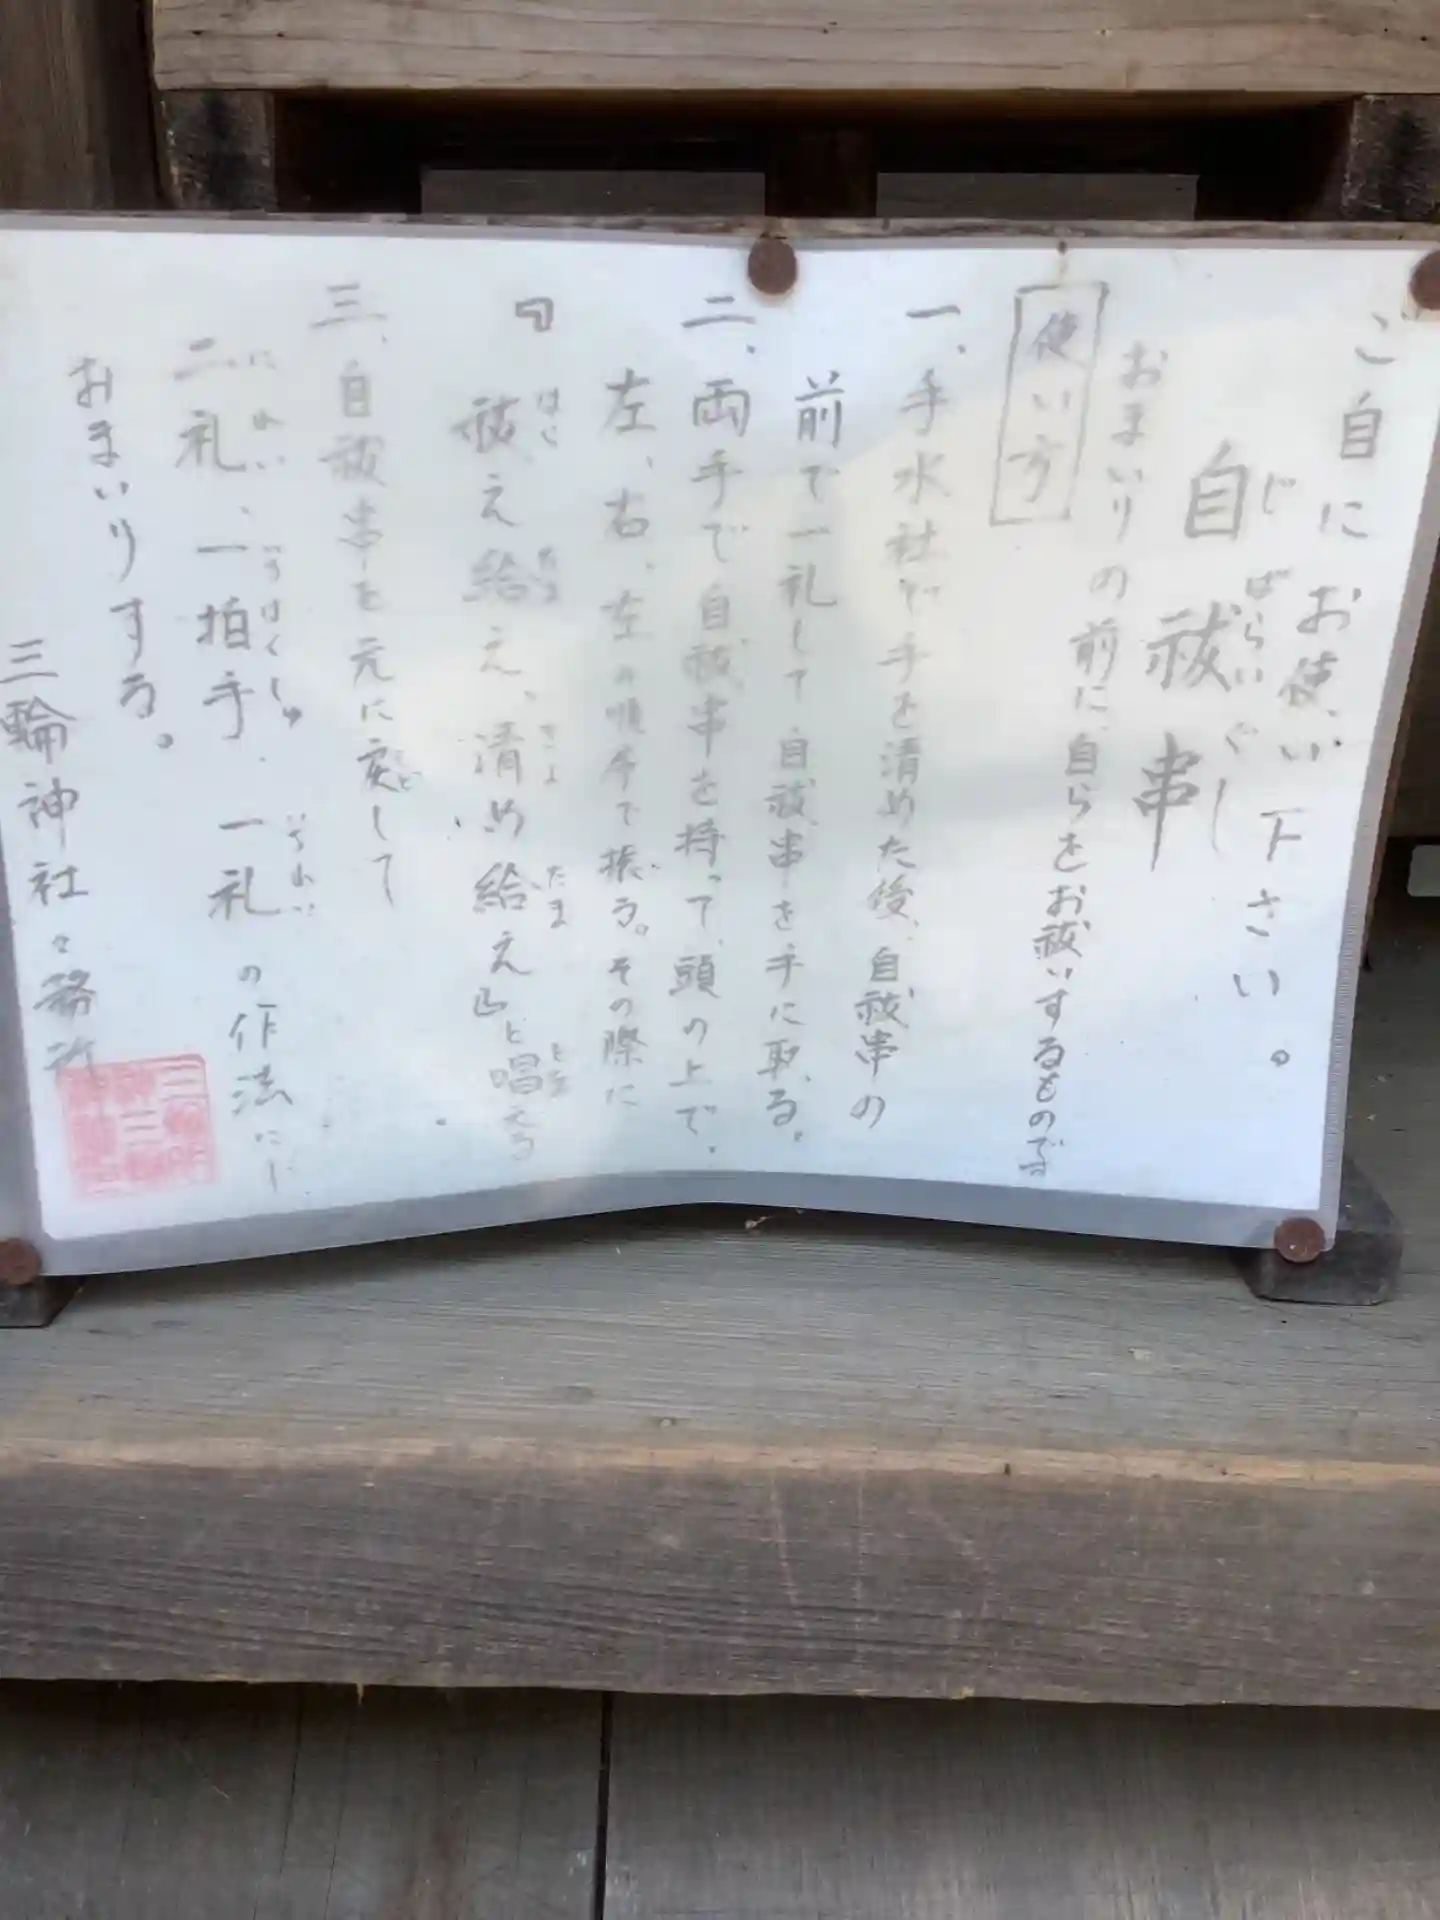 ご自にお使い下さい。
じばらいぐし
自祓串
おまいりの前に自らをお祓いするものです
使い方
一、手水社で手を清めた後、自祓串の
前で一礼して自祓串を手に取る。
二、両手で自祓串を持って、頭の上で、
左、右、左の順序で振る。その際に
『祓え給え、清め給え』と唱える
三、自祓串を元に戻して
二礼、一拍手、一礼の作法に
おまいりする。
三輪神社々務所